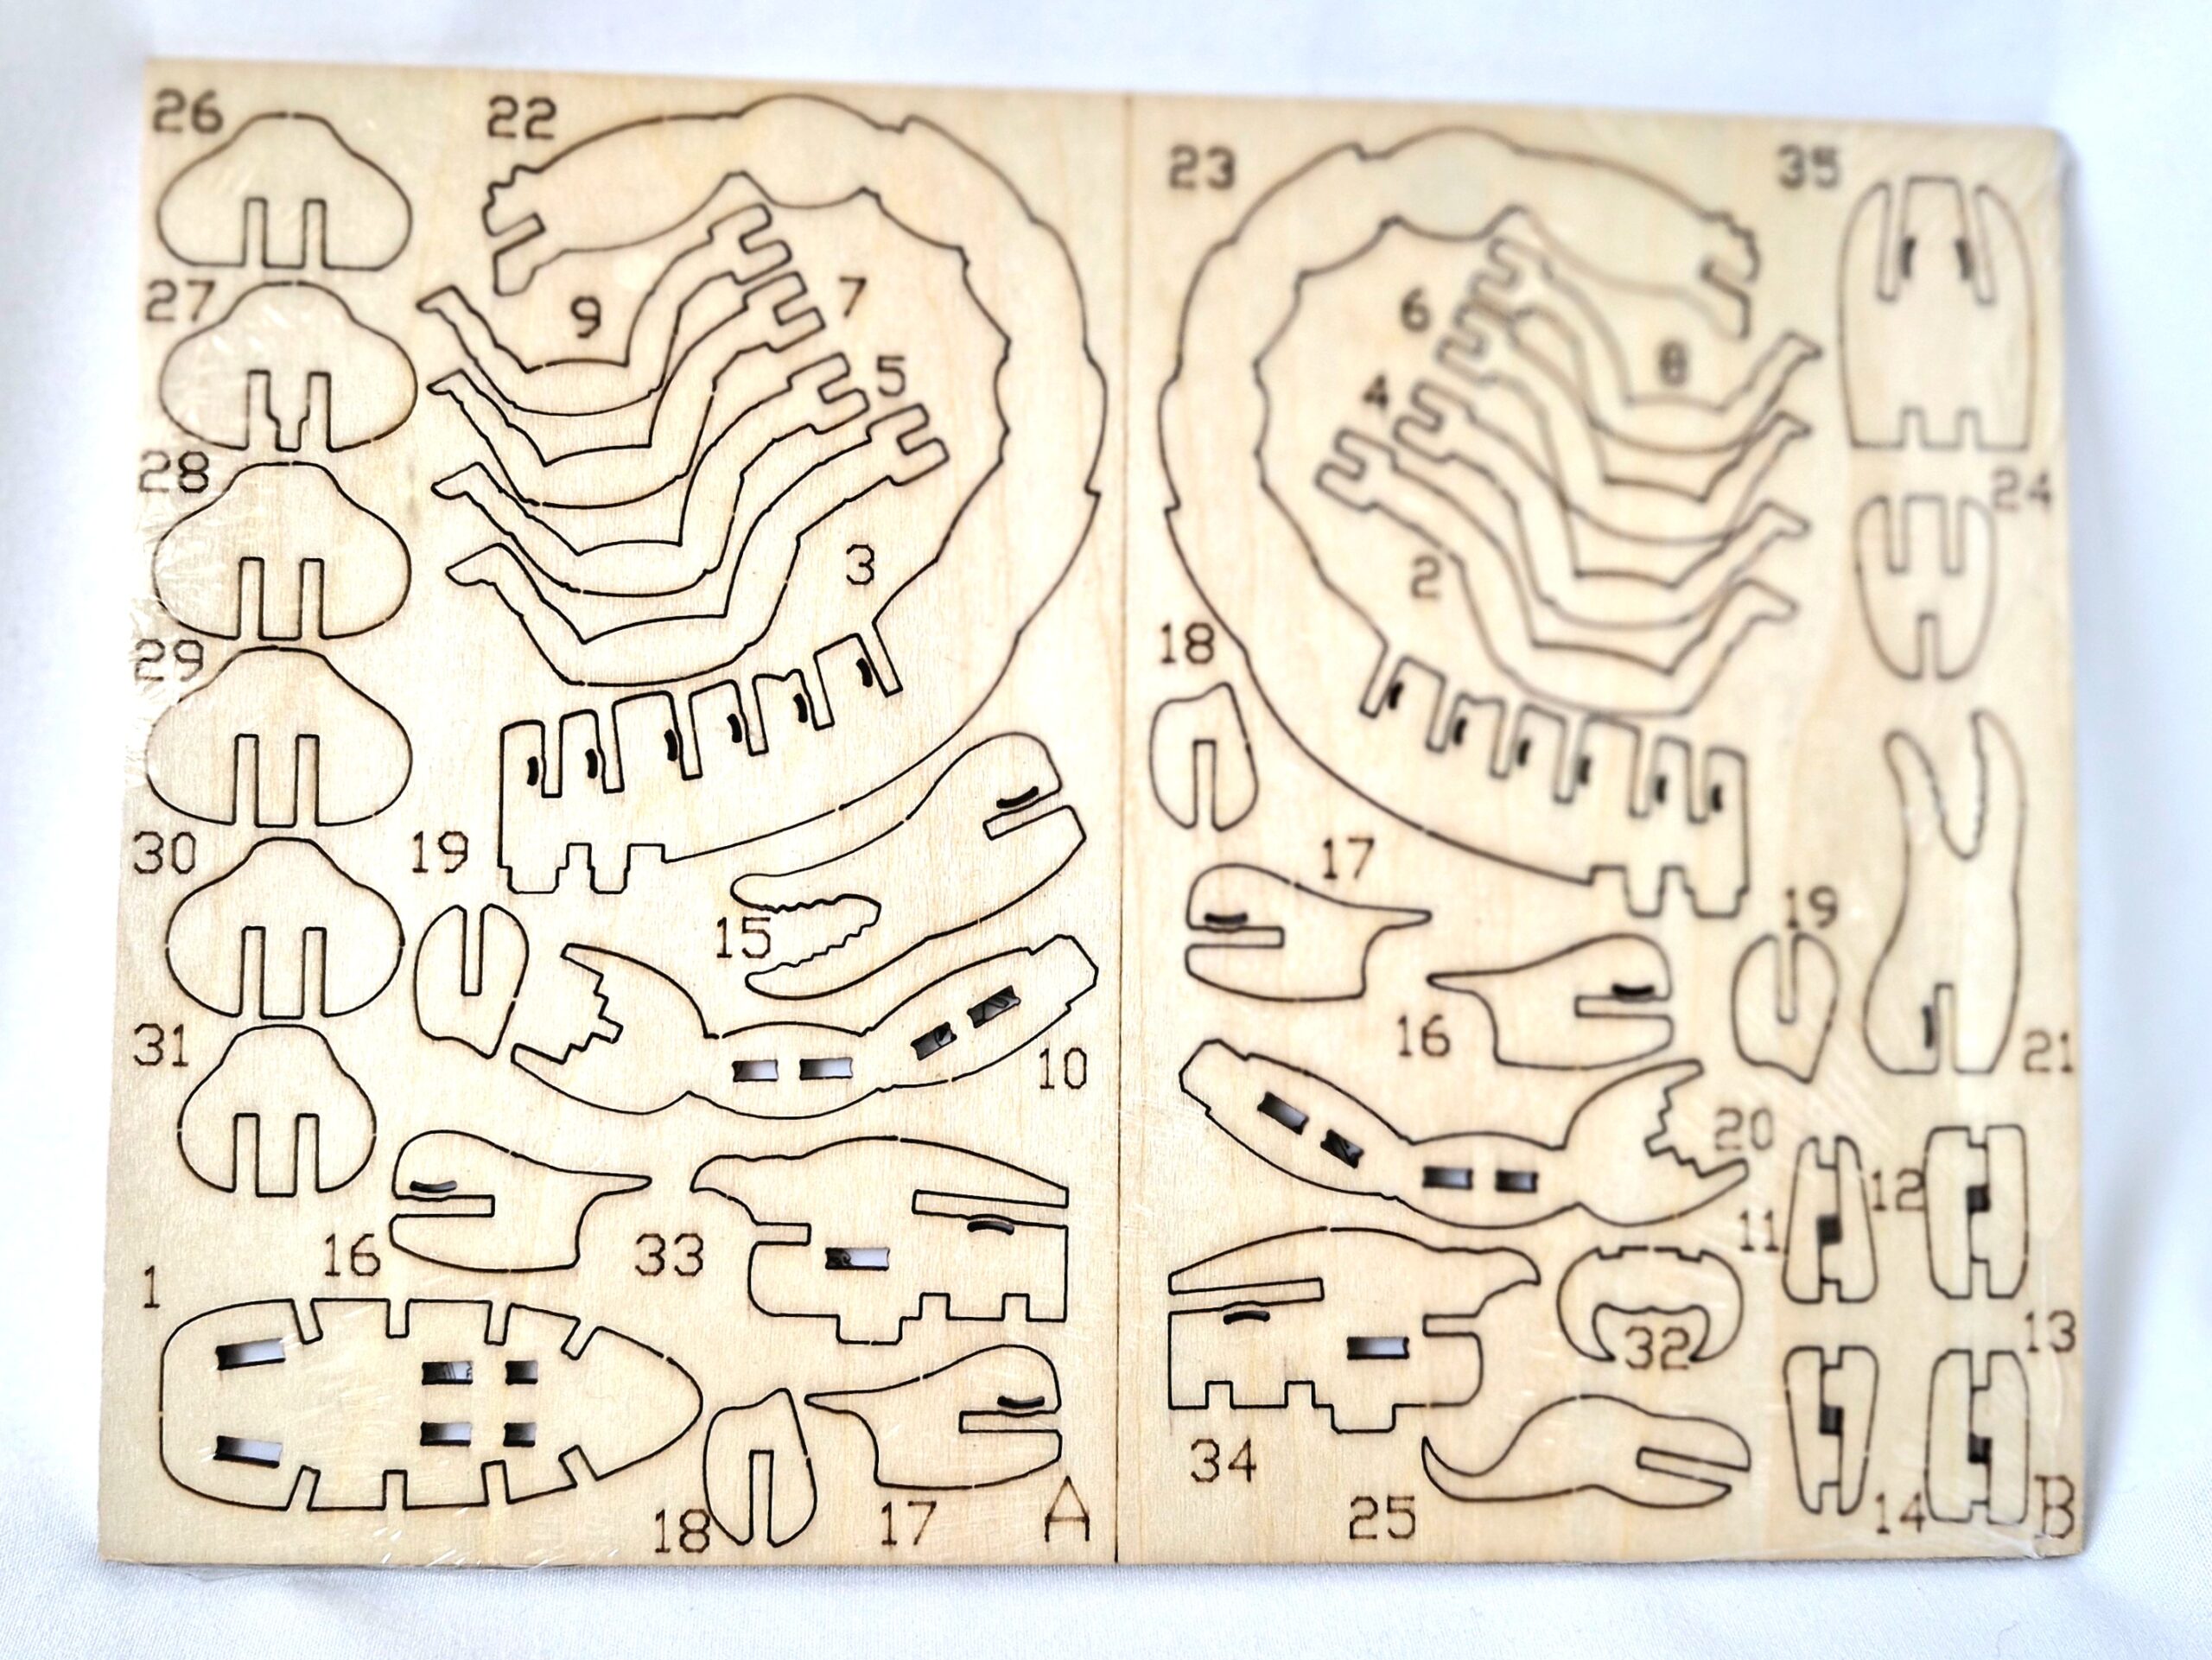 26
22
27
9
7
5
28
3
29
30
19
15
31
10
16
33
1
18
17
A
23
35
6
8
4
24
2
18
17
19
16
21
20
12
11
32
13
34
25
14
B